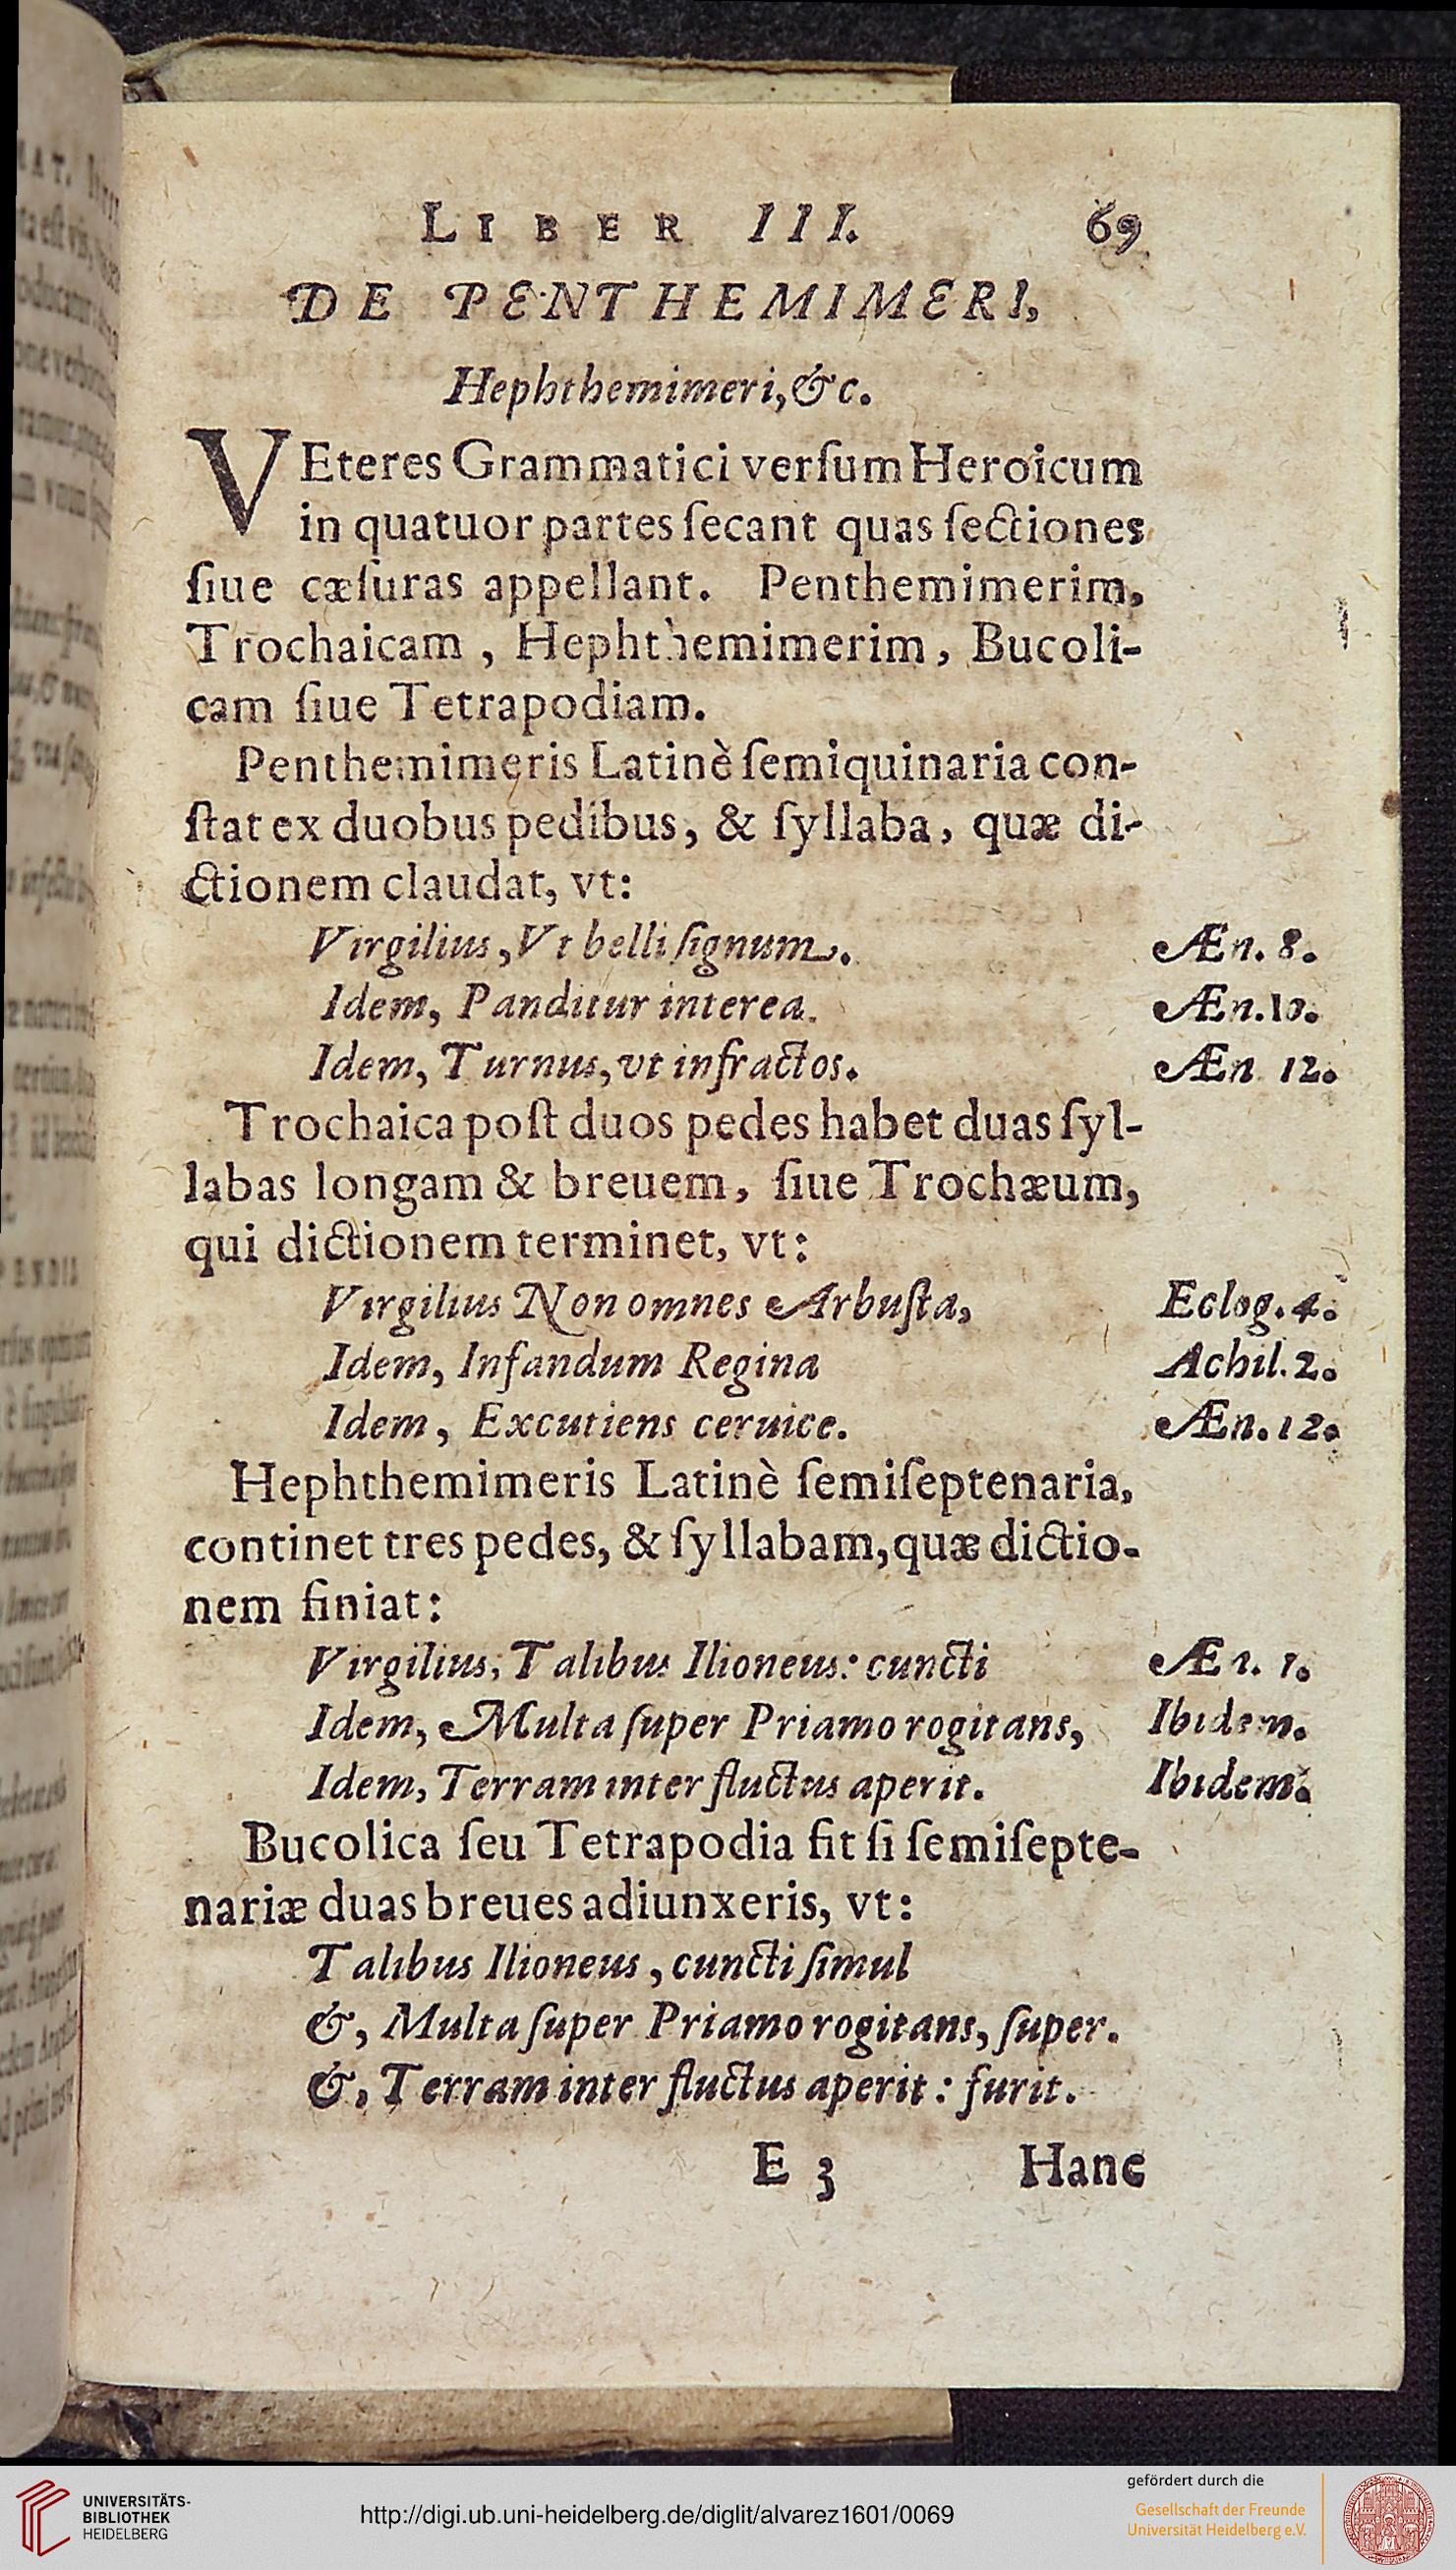 LIBER III. 69
DE PENTHEMIMERI,
Hephthemimeri, &c.
VEteres Grammatici verſum Heroicum
in quatuor partes ſecant quas ſectiones
ſiue cæſuras appellant. Penthemimerim,
Trochaicam, Hephthemimerim, Bucoli-
cam ſiue Tetrapodiam.
Penthemimeris Latinè ſemiquinaria con-
ſtat ex duobus pedibus, & ſyllaba, quæ di-
ctionem claudat, vt:
Virgilius, Vt belli ſignum. Æn. 8.
Idem, Panditur interea. Æn. 10.
Idem, Turnus, vt infractos. Æn 12.
Trochaica poſt duos pedes habet duas ſyl-
labas longam & breuem, ſiue Trochæum,
qui dictionem terminet, vt:
Virgilius Non omnes Arbuſta, Eclog. 4.
Idem, Infandum Regina Achil. 2.
Idem, Excutiens ceruice. Æn. 12.
Hephthemimeris Latinè ſemiſeptenaria,
continet tres pedes, & ſyllabam, quæ dictio-
nem finiat:
Virgilius, Talibus Ilioneus: cuncti Æn. 1.
Idem, Multa ſuper Priamo rogitans, Ibidem.
Idem, Terram inter fluctus aperit. Ibidem.
Bucolica ſeu Tetrapodia fit ſi ſemiſepte-
nariæ duas breues adiunxeris, vt:
Talibus Ilioneus, cuncti ſimul
&, Multa ſuper Priamo rogitans, ſuper.
&, Terram inter fluctus aperit: furit.
E 3 Hanc
UNIVERSITÄTS-
BIBLIOTHEK
HEIDELBERG
http://digi.ub.uni-heidelberg.de/diglit/alvarez1601/0069
gefördert durch die
Gesellschaft der Freunde
Universität Heidelberg e.V.